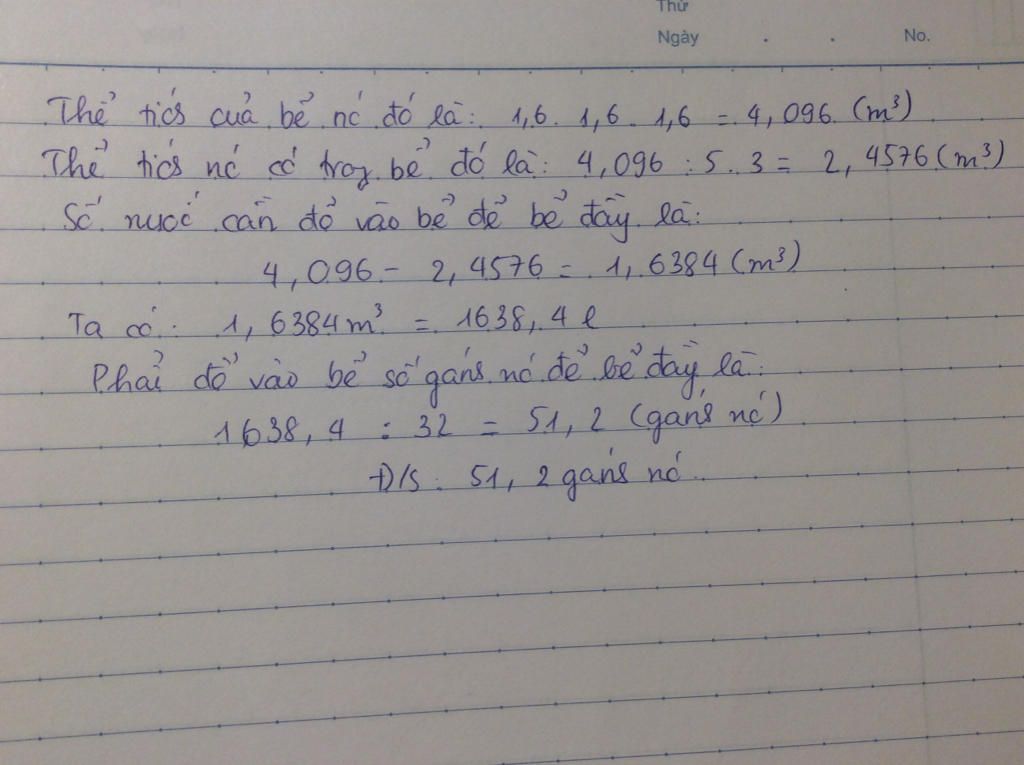 Thứ
Ngày . . No.
Thể tics cuả bể nć đó là: 1,6. 1,6. 1,6 = 4,096 (m³)
Thể tics nć có trog bể đó là: 4,096 : 5 . 3 = 2,4576 (m³)
Số nước cần đổ vào bể để bể đầy là:
4,096 - 2,4576 = 1,6384 (m³)
Ta có: 1,6384 m³ = 1638,4 l
Phải đổ vào bể số gáns nć để bể đầy là:
1638,4 : 32 = 51,2 (gáns nć)
Đ/S: 51,2 gáns nć